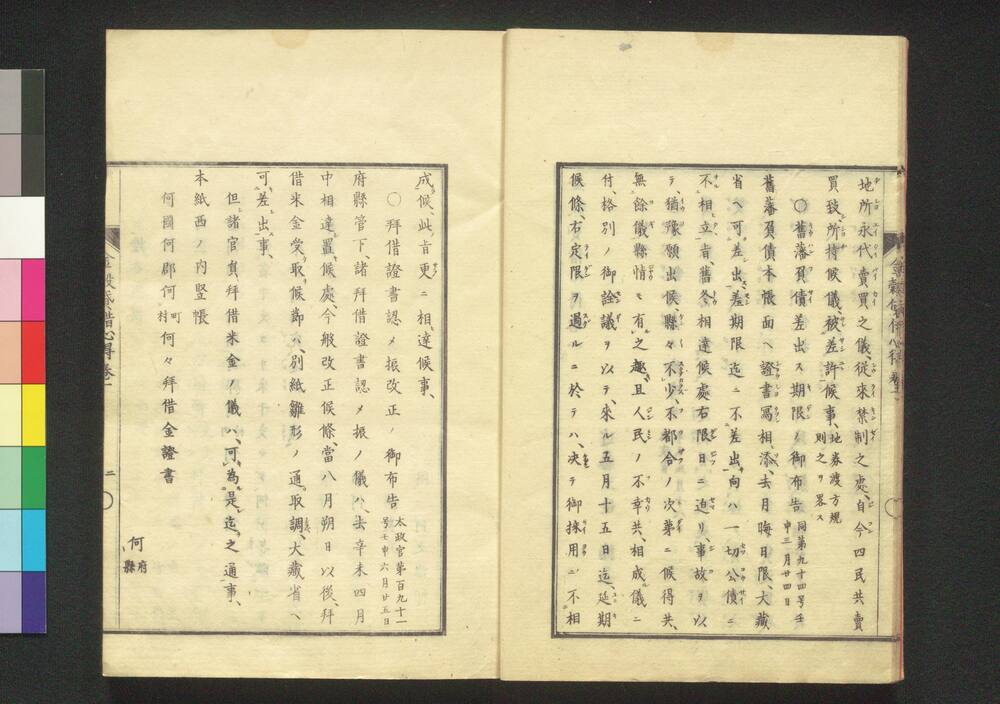 地所永代賣買之儀、從來禁制之處、自今四民共賣
買致所持候儀、被差許候事、地券渡方規則之ヲ畧ス
○舊藩負債差出ス期限ノ御布告同第九十四号壬申三月廿四日
舊藩負債本帳面ヘ證書寫相添、去月晦日限、大藏
省ヘ可差出、差期限迄ニ不差出向ハ一切公債ニ
不相立旨、舊冬相達候處右限日ニ迫リ、事故ヲ以
テ、猶豫願出候縣々不少、不都合ノ次第ニ候得共、
無餘儀縣情モ有之趣、且人民ノ不幸共、相成儀ニ
付、格別ノ御詮議ヲ以テ、來ル五月十五日迄、延期
候條、右定限ヲ過ルニ於テハ、决テ御採用ニ不相
成候、此旨更ニ相達候事、
○拜借證書認メ振改正ノ御布告太政官第百九十一号壬申六月廿五日
府縣管下、諸拜借證書認メ振ノ儀ハ、去辛未四月
中相達置候處、今般改正候條、當八月朔日以後、拜
借米金受取候節ハ、別紙雛形ノ通取調、大藏省ヘ
可差出事、
但諸官員拜借米金ノ儀ハ、可為是迄之通事、
本紙西ノ内竪帳
何國何郡何町村何々拜借金證書
何府縣
二